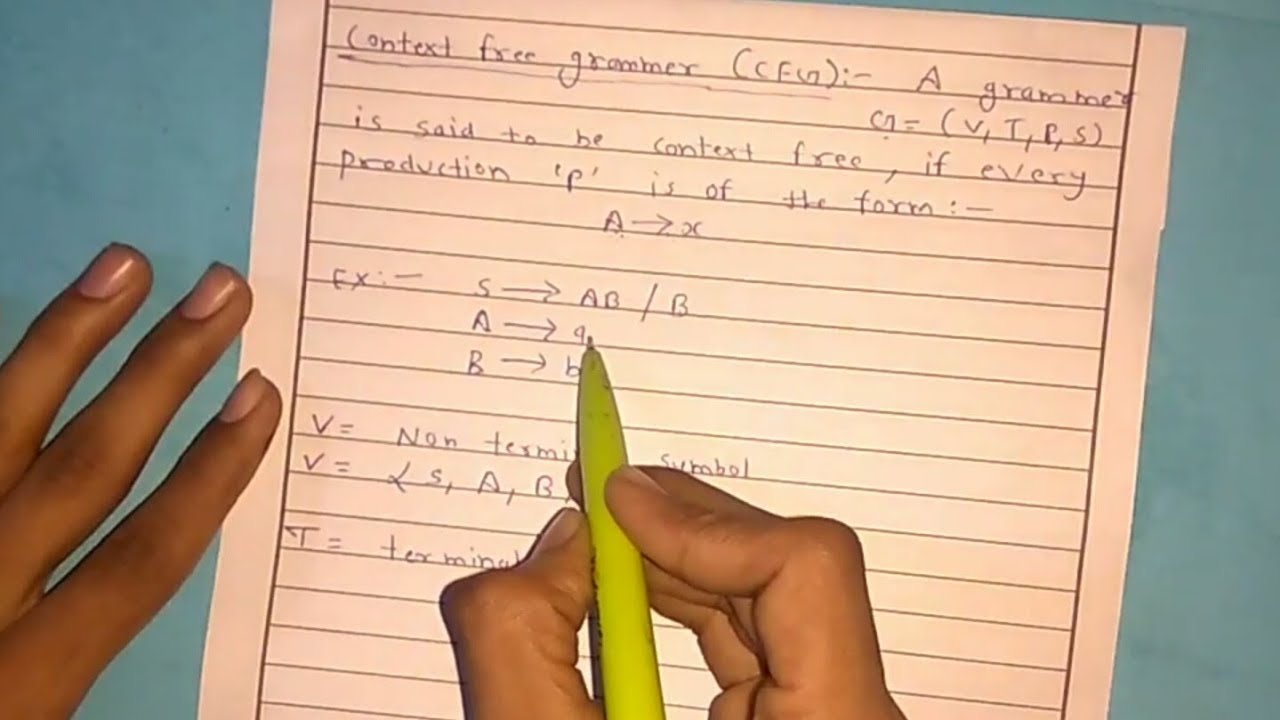 Context free grammer (CFG):- A grammer
G = (V, T, P, S)
is said to be context free, if every
production 'p' is of the form:-
A → x
Ex:- S → AB / B
A → a
B → b
V = Non symbol
V = { S, A, B
T = terminal